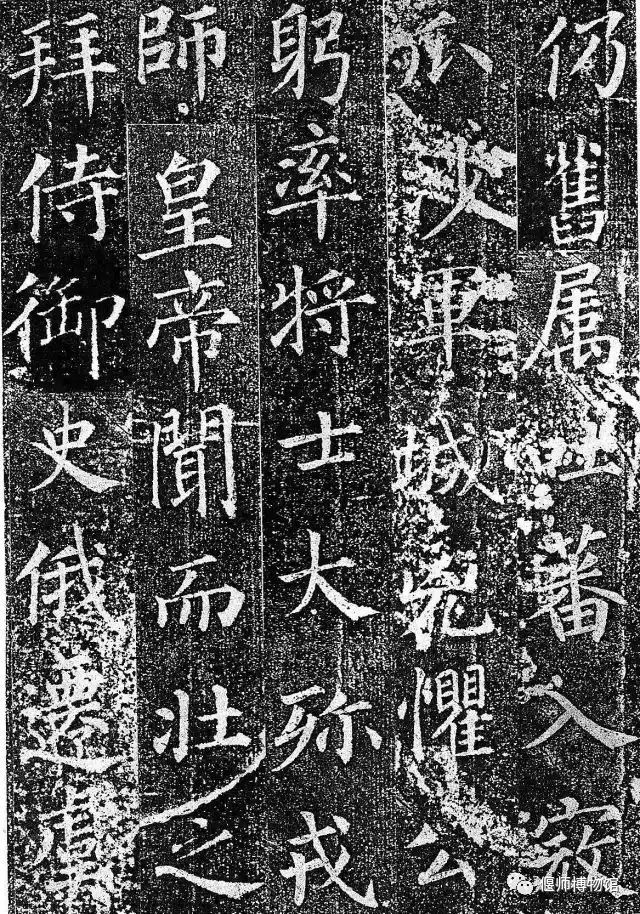 仍舊属吐蕃入寇
瓜沙軍城兇懼公
躬率将士大殄戎
師皇帝聞而壮之
拜侍御史俄遷虞
偃师博物馆